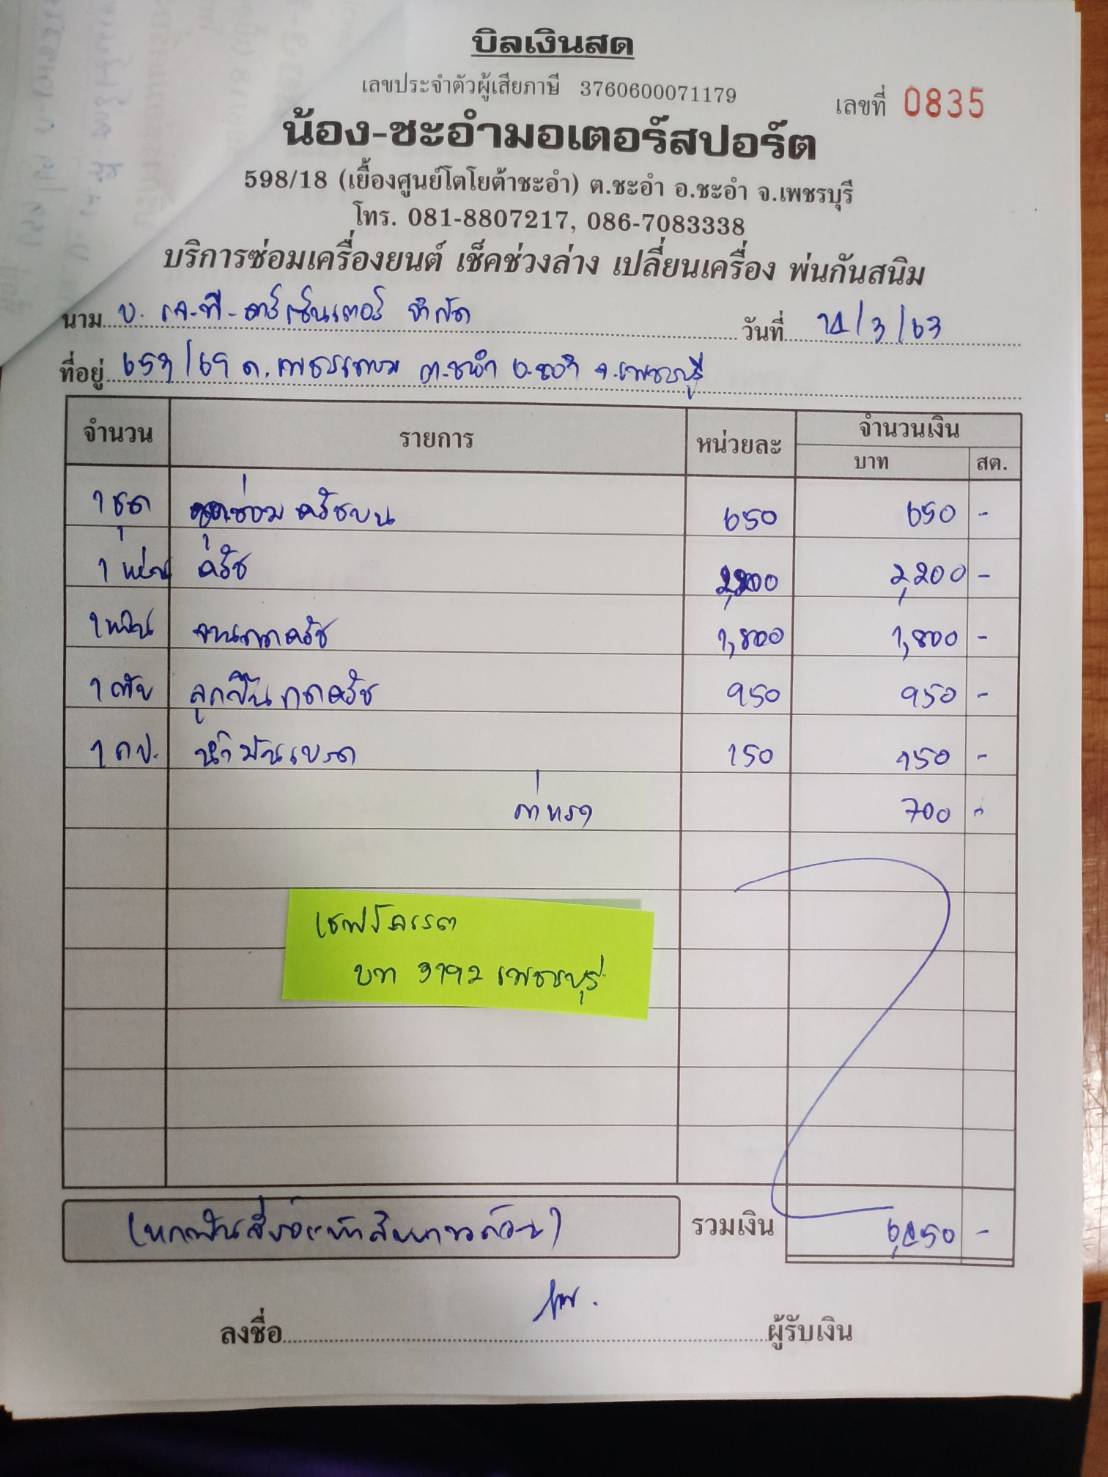 บิลเงินสด
เลขประจำตัวผู้เสียภาษี 3760600071179
เลขที่ 0835
น้อง-ชะอำมอเตอร์สปอร์ต
598/18 (เยื้องศูนย์โตโยต้าชะอำ) ต.ชะอำ อ.ชะอำ จ.เพชรบุรี
โทร. 081-8807217, 086-7083338
บริการซ่อมเครื่องยนต์ เช็คช่วงล่าง เปลี่ยนเครื่อง พ่นกันสนิม
นาม บ. เจ-ที-คาร์เซ็นเตอร์ จำกัด วันที่ /3/63
ที่อยู่ 659/69 ถ. เพชรเกษม ต.ชะอำ อ.ชะอำ จ.เพชรบุรี
จำนวน รายการ หน่วยละ จำนวนเงิน
บาท สต.
1 ชุด ชุดซ่อมครัชบน 650 650 -
1 แผ่น ครัช 2,200 2,200 -
1 แผ่น จานกดครัช 1,800 1,800 -
1 ตับ ลูกปืนกดครัช 950 950 -
1 กป. น้ำมันเบรค 150 150 -
ค่าแรง 700 -
เชฟโรเลต
บท 3192 เพชรบุรี
(หกพันสี่ร้อยห้าสิบบาทถ้วน) รวมเงิน 6,450 -
ลงชื่อ ผู้รับเงิน